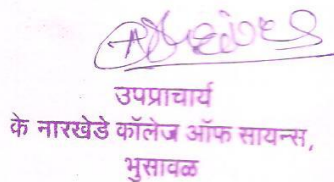 उपप्राचार्य
के नारखेडे कॉलेज ऑफ सायन्स,
भुसावळ